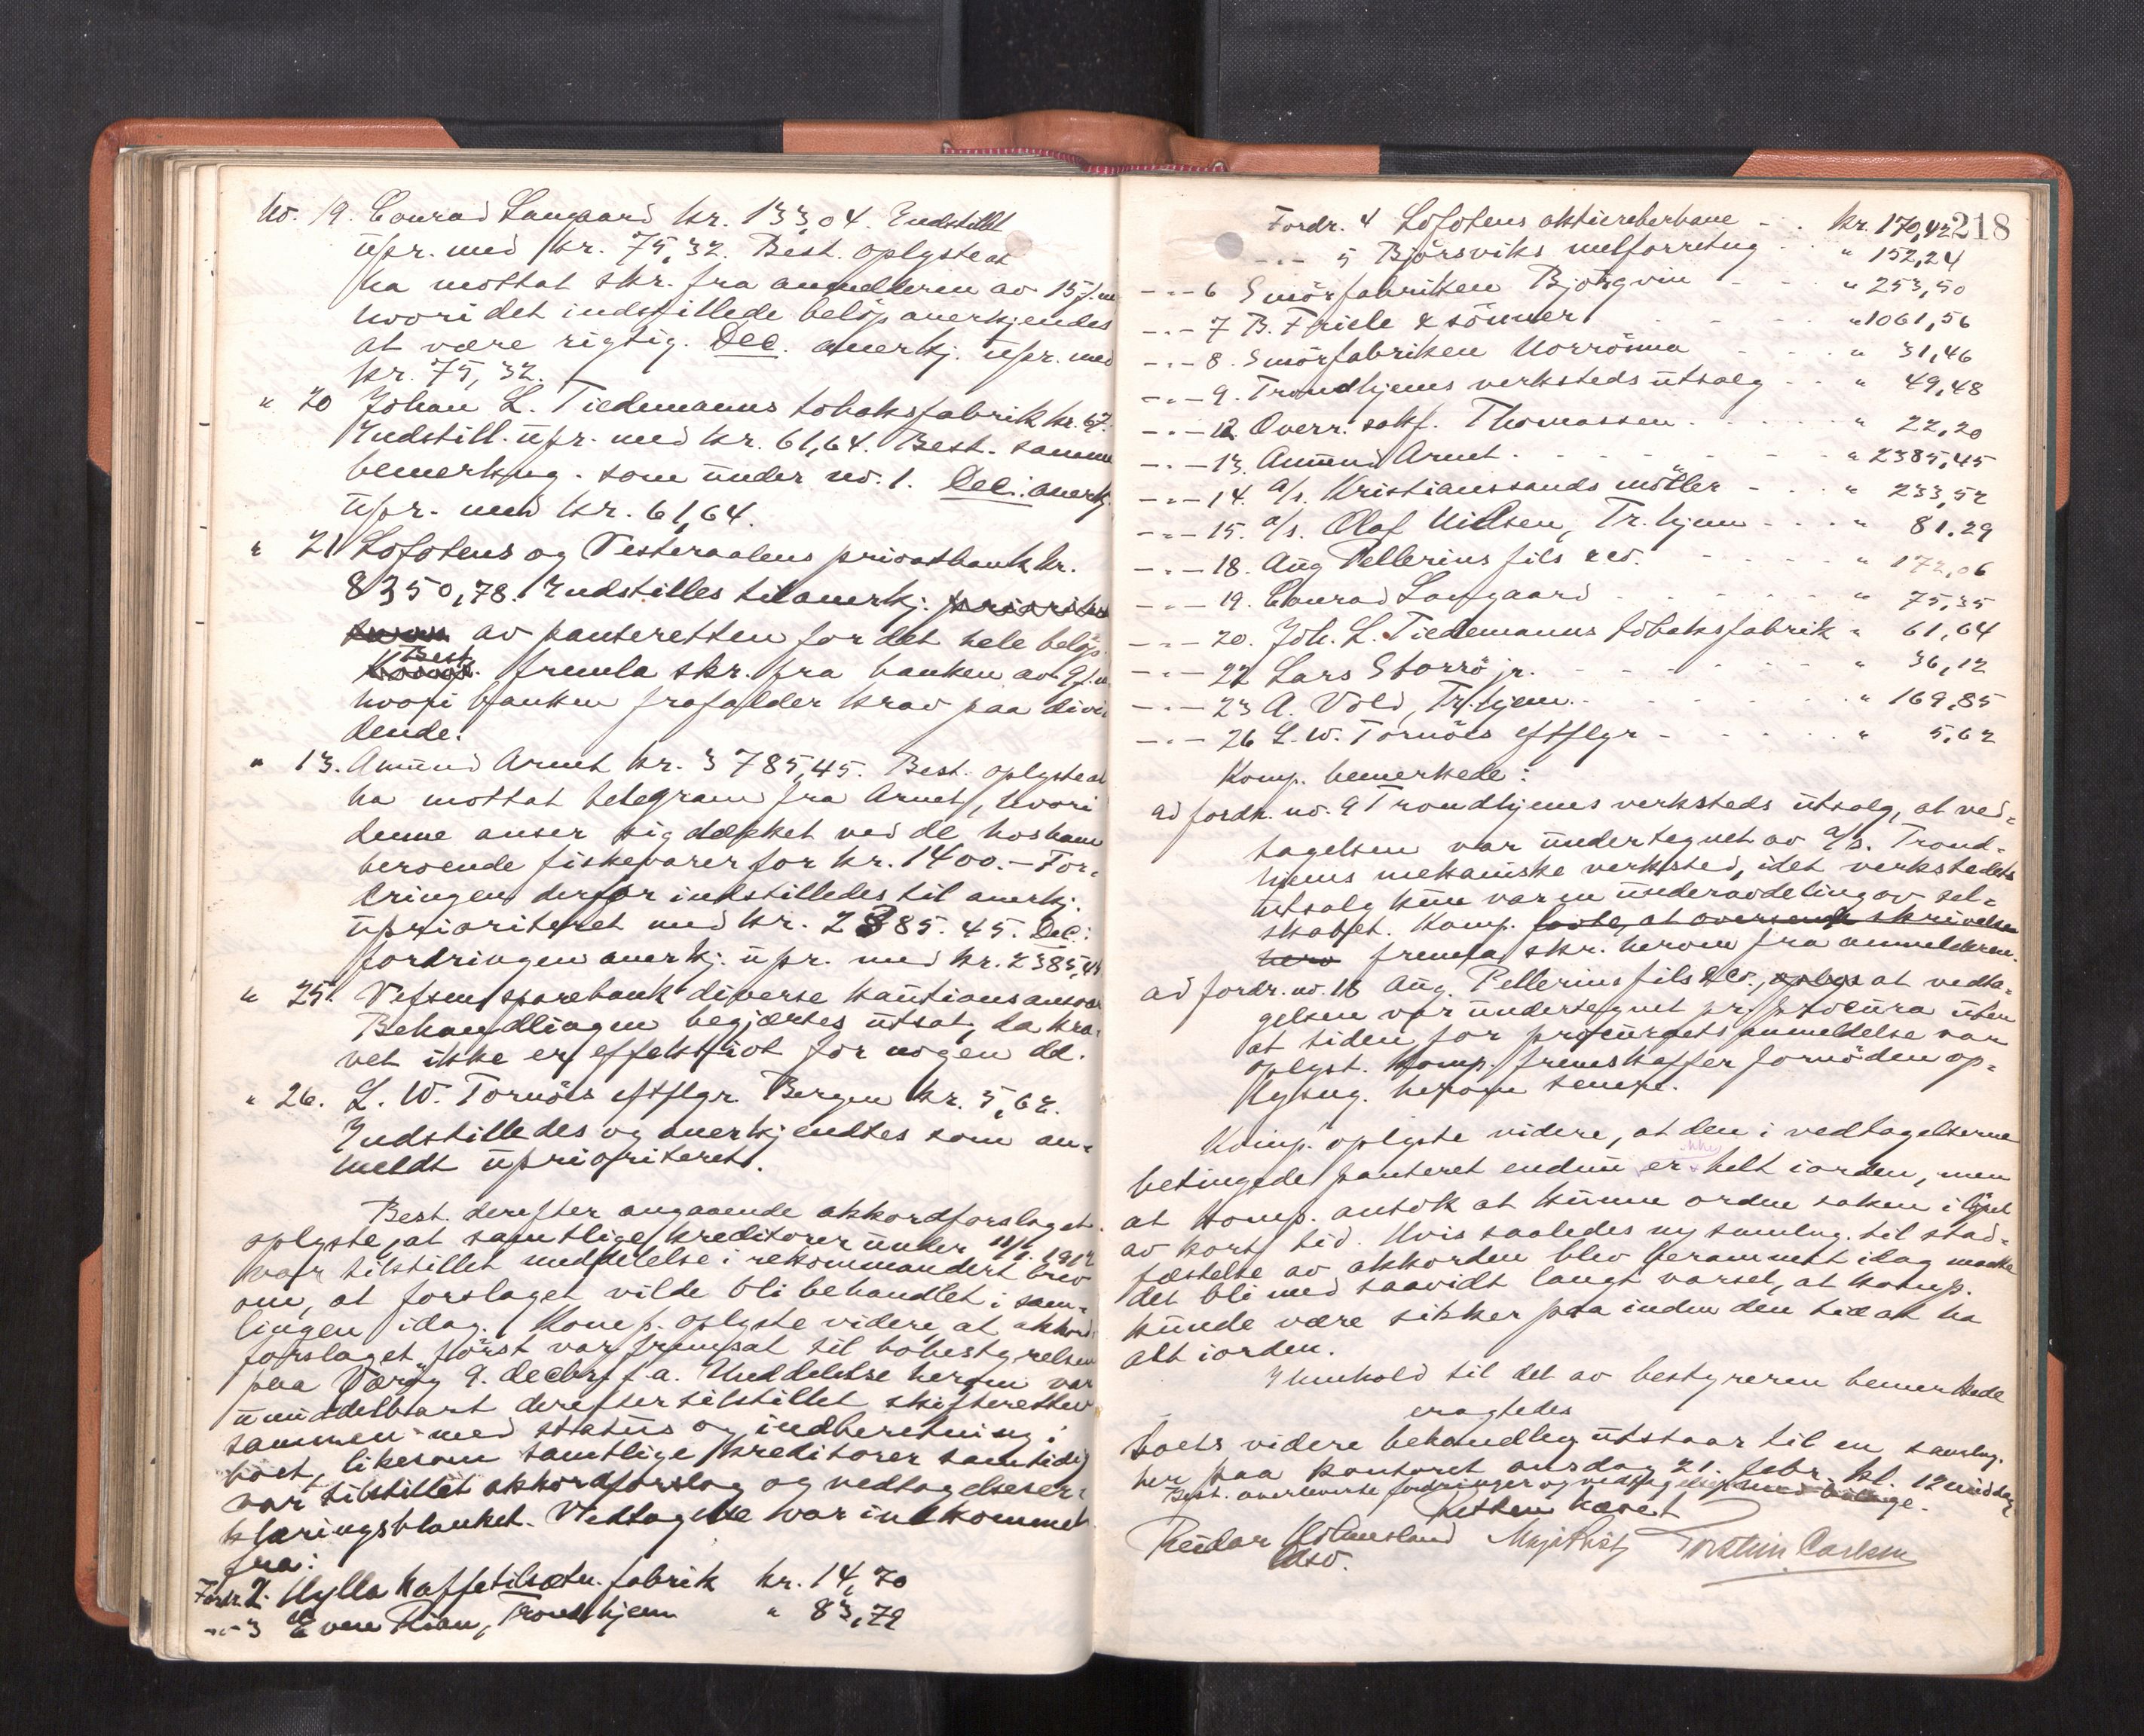 No. 19. Conrad Langaard kr. 133,04. Indstillt
upr. med kr. 75,32. Best. oplyste at
ha mottat skr. fra anmelderen av 15/
hvori det indstillede beløp anerkjendes
at være rigtig. Dec. anerkj. upr. med
kr. 75,32.
" 20 Johan L. Tiedemanns tobaksfabrik kr. 67.
Indstill. upr. med kr. 61,64. Best. samme
bemerkng. som under no. 1. Dec: anerkj.
upr. med kr. 61,64.
" 21 Lofotens og Vesteraalens privatbank kr.
8350,78. Indstilles til anerkj.
av panteretten for det hele beløp.
Best. fremla skr. fra banken av 9/
hvori banken frafalder krav paa divi
dende.
" 13. Amund Arnet kr. 3785,45. Best. oplyste at
ha mottat telegram fra Arnet, hvori
denne anser sig dækket ved de hos ham
beroende fiskevarer for kr. 1400.- For-
dringen derfor indstilledes til anerkj.
uprioriteret med kr. 2385.45. Dec:
fordringen anerkj. upr. med kr. 2385,45
" 25. Vefsens sparebank diverse kautionsansvar
Behandlingen begjærtes utsat, da kra-
vet ikke er effektivt for nogen del.
" 26. L. W. Tornöes eftflgr. Bergen kr. 5,62.
Indstilledes og anerkjendtes som an-
meldt uprioriteret.
Best. derefter angaaende akkordforslaget
oplyste, at samtlige kreditorer under 11/1. 1912
var tilstillet meddelelse i rekommandert brev
om, at forslaget vilde bli behandlet i sam-
lingen idag. Komp. oplyste videre, at akkord-
forslaget først var fremsat til bobestyrelsen
paa Værøy 9. decbr. f.a. Meddelelse herom var
umiddelbart derefter tilstillet skifteretten
sammen med status og indberetning i
boet, likesom samtlige kreditorer samtidig
var tilstillet akkordforslag og vedtagelseser-
klæringsblanket. Vedtagelse var indkommet
fra:
Fordr. 2. Hylla kaffetilsætn. fabrik kr. 14,70
-"- 3 Even Rian, Trondhjem " 83,79
218
Fordr. 4 Lofotens aktiereberbane - . kr. 170,42
-"- 5 Björsviks melforretng " 152,24
-"- 6 Smörfabriken Björgvin " 253,50
-"- 7 B. Friele & sönner " 1061,56
-"- 8. Smörfabriken Norröna " 31,46
-"- 9. Trondhjems verksteds utsalg " 49,48
-"- 12. Overr. sakf. Thomassen " 22,20
-"- 13. Amund Arnet " 2385,45
-"- 14. A/s. Kristianssands möller " 233,52
-"- 15. A/s. Olaf Nielsen, Tr.hjem " 81.29
-"- 18. Aug Pellerins fils & co. " 172,06
-"- 19. Conrad Langaard " 75,35
-"- 20. Joh. L. Tiedemanns tobaksfabrik " 61,64
-"- 22 Lars Storrö jr. " 36,12
-"- 23 A. Vold, Tr.hjem " 169,85
-"- 26 L. W. Tornöes eftflgr " 5,62
Komp. bemerkede:
ad fordr. no. 9 Trondhjems verksteds utsalg, at ved-
tagelsen var undertegnet av A/s. Trond-
hjems mekaniske verksted, idet verkstedets
utsalg kun var en underavdeling av sel-
skapet. Komp. lovte, at oversende skrivelse
hero fremla skr. herom fra anmelderen.
ad fordr. no. 18 Aug. Pellerins fils & co., at vedta-
gelsen var undertegnet pr. procura uten
at tiden for procuraets anmeldelse var
oplyst. Komp. fremskaffer fornöden op-
lysng. herom senere.
Komp. oplyste videre, at den i vedtagelserne
betingede panteret endnu er ikke helt iorden, men
at komp. antok at kunne ordne saken i löpet
av kort tid. Hvis saaledes ny samlng. til stad-
fæstelse av akkorden blev berammet idag maatte
det bli med saavidt langt varsel, at komp.
kunde være sikker paa inden den tid at ha
alt iorden.
I henhold til det av bestyreren bemerkede
eragtedes
Boets videre behandlng utstaar til en samlng.
her paa kontoret onsdag 21. febr. kl. 12 middag
Best. overleverte fordringer og vedtagelser med bilage.
Retten hævet
Reidar Holmesland Torstein Carlsen